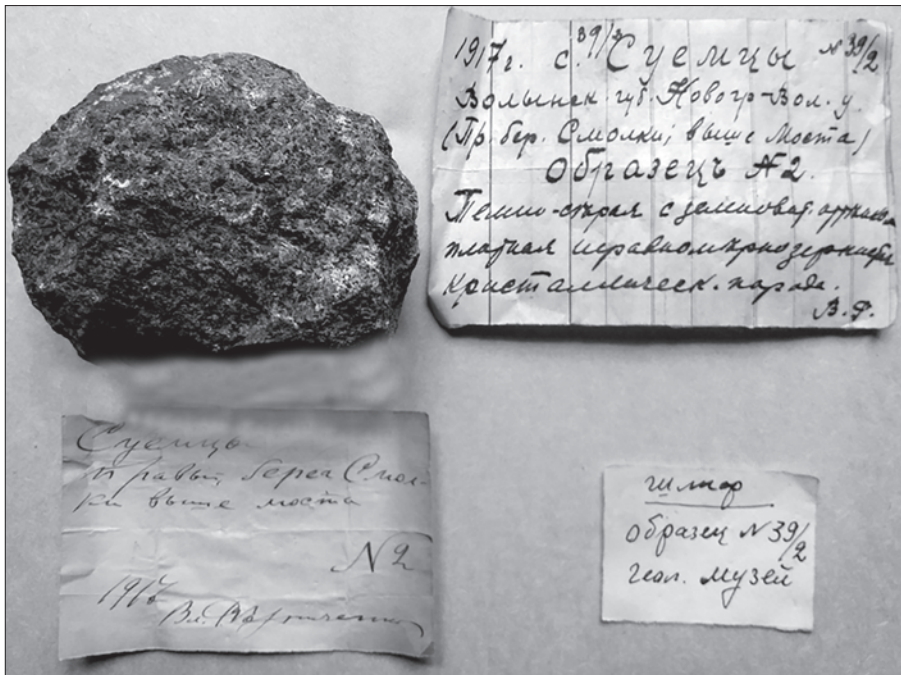 39/2
1917г. с. Суемцы N 39/2
Волынск. губ. Новогр-Вол. у.
(Пр. бер. Смолки, выше моста)
Образецъ N2.
Темно-серая с зеленоват. оттенком
плотная неравномернозернист.
кристаллическ. порода.
В.Ф.
Суемцы
правый берег Смол-
ки выше моста
N2
1917
Вл.
шлиф
образец N39/2
геол. музей